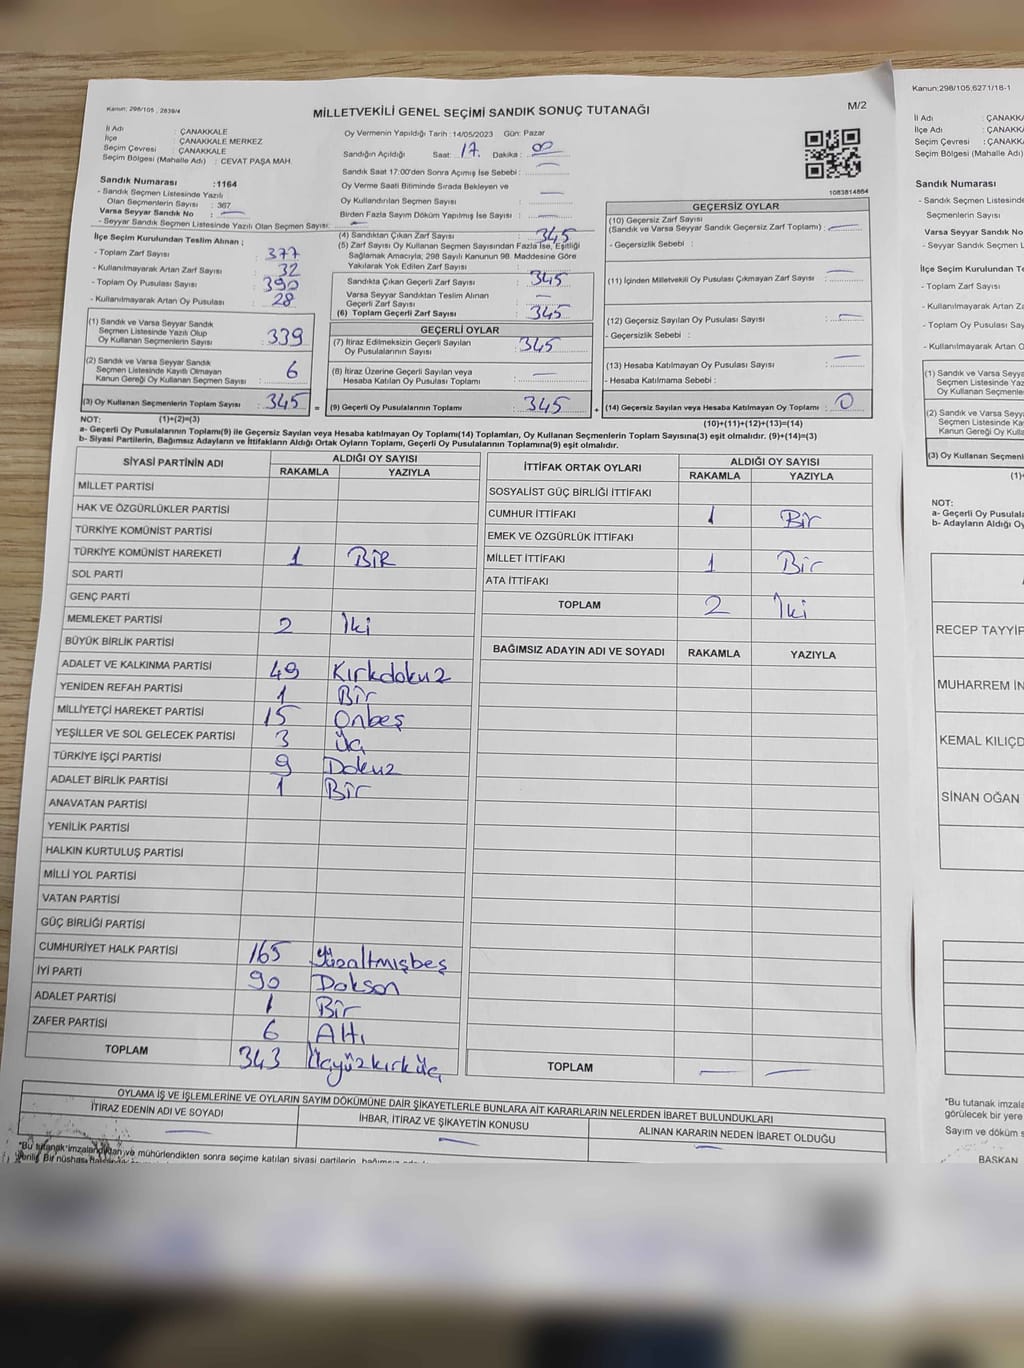 Kanun: 298/105 , 2839/4
MİLLETVEKİLİ GENEL SEÇİMİ SANDIK SONUÇ TUTANAĞI
M/2
İl Adı : ÇANAKKALE
İlçe : ÇANAKKALE MERKEZ
Seçim Çevresi : ÇANAKKALE
Seçim Bölgesi (Mahalle Adı) : CEVAT PAŞA MAH.
Sandık Numarası :1164
- Sandık Seçmen Listesinde Yazılı
Olan Seçmenlerin Sayısı : 367
Varsa Seyyar Sandık No : —
- Seyyar Sandık Seçmen Listesinde Yazılı Olan Seçmen Sayısı: —
İlçe Seçim Kurulundan Teslim Alınan ;
- Toplam Zarf Sayısı : 377
- Kullanılmayarak Artan Zarf Sayısı : 32
- Toplam Oy Pusulası Sayısı : 390
- Kullanılmayarak Artan Oy Pusulası : 28
(1) Sandık ve Varsa Seyyar Sandık
Seçmen Listesinde Yazılı Olup
Oy Kullanan Seçmenlerin Sayısı : 339
(2) Sandık ve Varsa Seyyar Sandık
Seçmen Listesinde Kayıtlı Olmayan
Kanun Gereği Oy Kullanan Seçmen Sayısı : 6
(3) Oy Kullanan Seçmenlerin Toplam Sayısı : 345 =
(1)+(2)=(3)
Oy Vermenin Yapıldığı Tarih : 14/05/2023 Gün: Pazar
Sandığın Açıldığı Saat: 17. Dakika : 00
Sandık Saat 17:00'den Sonra Açımış İse Sebebi : —
Oy Verme Saati Bitiminde Sırada Bekleyen ve
Oy Kullandırılan Seçmen Sayısı : —
Birden Fazla Sayım Döküm Yapılmış İse Sayısı : —
(4) Sandıktan Çıkan Zarf Sayısı : 345
(5) Zarf Sayısı Oy Kullanan Seçmen Sayısından Fazla İse, Eşitliği
Sağlamak Amacıyla; 298 Sayılı Kanunun 98. Maddesine Göre
Yakılarak Yok Edilen Zarf Sayısı : —
Sandıkta Çıkan Geçerli Zarf Sayısı : 345
Varsa Seyyar Sandıktan Teslim Alınan
Geçerli Zarf Sayısı : —
(6) Toplam Geçerli Zarf Sayısı : 345
GEÇERLİ OYLAR
(7) İtiraz Edilmeksizin Geçerli Sayılan
Oy Pusulalarının Sayısı : 345
(8) İtiraz Üzerine Geçerli Sayılan veya
Hesaba Katılan Oy Pusulası Toplamı : —
(9) Geçerli Oy Pusulalarının Toplamı : 345 +
1083814864
GEÇERSİZ OYLAR
(10) Geçersiz Zarf Sayısı
(Sandık ve Varsa Seyyar Sandık Geçersiz Zarf Toplamı) : —
- Geçersizlik Sebebi :
(11) İçinden Milletvekili Oy Pusulası Çıkmayan Zarf Sayısı : —
(12) Geçersiz Sayılan Oy Pusulası Sayısı : —
- Geçersizlik Sebebi :
(13) Hesaba Katılmayan Oy Pusulası Sayısı : —
- Hesaba Katılmama Sebebi :
(14) Geçersiz Sayılan veya Hesaba Katılmayan Oy Toplamı : 0
(10)+(11)+(12)+(13)=(14)
NOT:
a- Geçerli Oy Pusulalarının Toplamı(9) ile Geçersiz Sayılan veya Hesaba katılmayan Oy Toplamı(14) Toplamları, Oy Kullanan Seçmenlerin Toplam Sayısına(3) eşit olmalıdır. (9)+(14)=(3)
b- Siyasi Partilerin, Bağımsız Adayların ve İttifakların Aldığı Ortak Oyların Toplamı, Geçerli Oy Pusulalarının Toplamına(9) eşit olmalıdır.
SİYASİ PARTİNİN ADI ALDIĞI OY SAYISI
RAKAMLA YAZIYLA
MİLLET PARTİSİ
HAK VE ÖZGÜRLÜKLER PARTİSİ
TÜRKİYE KOMÜNİST PARTİSİ
TÜRKİYE KOMÜNİST HAREKETİ 1 BİR
SOL PARTİ
GENÇ PARTİ
MEMLEKET PARTİSİ 2 İki
BÜYÜK BİRLİK PARTİSİ
ADALET VE KALKINMA PARTİSİ 49 Kırkdokuz
YENİDEN REFAH PARTİSİ 1 Bir
MİLLİYETÇİ HAREKET PARTİSİ 15 Onbeş
YEŞİLLER VE SOL GELECEK PARTİSİ 3 Üç
TÜRKİYE İŞÇİ PARTİSİ 9 Dokuz
ADALET BİRLİK PARTİSİ 1 Bir
ANAVATAN PARTİSİ
YENİLİK PARTİSİ
HALKIN KURTULUŞ PARTİSİ
MİLLİ YOL PARTİSİ
VATAN PARTİSİ
GÜÇ BİRLİĞİ PARTİSİ
CUMHURİYET HALK PARTİSİ 165 Yüzaltmışbeş
İYİ PARTİ 90 Doksan
ADALET PARTİSİ 1 Bir
ZAFER PARTİSİ 6 Altı
TOPLAM 343 Üçyüzkırküç
İTTİFAK ORTAK OYLARI ALDIĞI OY SAYISI
RAKAMLA YAZIYLA
SOSYALİST GÜÇ BİRLİĞİ İTTİFAKI
CUMHUR İTTİFAKI 1 Bir
EMEK VE ÖZGÜRLÜK İTTİFAKI
MİLLET İTTİFAKI 1 Bir
ATA İTTİFAKI
TOPLAM 2 İki
BAĞIMSIZ ADAYIN ADI VE SOYADI RAKAMLA YAZIYLA
TOPLAM — —
OYLAMA İŞ VE İŞLEMLERİNE VE OYLARIN SAYIM DÖKÜMÜNE DAİR ŞİKAYETLERLE BUNLARA AİT KARARLARIN NELERDEN İBARET BULUNDUKLARI
İTİRAZ EDENİN ADI VE SOYADI İHBAR, İTİRAZ VE ŞİKAYETİN KONUSU ALINAN KARARIN NEDEN İBARET OLDUĞU
— — —
*Bu tutanak imzalandıktan ve mühürlendikten sonra seçime katılan siyasi partilerin,
Kanun:298/105,6271/18-1
İl Adı : ÇANAKKA
İlçe Adı : ÇANAKKA
Seçim Çevresi : ÇANAKKA
Seçim Bölgesi (Mahalle Adı)
Sandık Numarası
- Sandık Seçmen Listesinde
Seçmenlerin Sayısı
Varsa Seyyar Sandık No
- Seyyar Sandık Seçmen L
İlçe Seçim Kurulundan Te
- Toplam Zarf Sayısı
- Kullanılmayarak Artan
- Toplam Oy Pusulası Say
- Kullanılmayarak Artan O
(1) Sandık ve Varsa Seyya
Seçmen Listesinde Yaz
Oy Kullanan Seçmenle
(2) Sandık ve Varsa Seyya
Seçmen Listesinde Ka
Kanun Gereği Oy Kulla
(3) Oy Kullanan Seçmenl
(1)+
NOT:
a- Geçerli Oy Pusulala
b- Adayların Aldığı Oy
RECEP TAYYİF
MUHARREM İN
KEMAL KILIÇD
SİNAN OĞAN
*Bu tutanak imzala
görülecek bir yere
Sayım ve döküm s
BAŞKAN